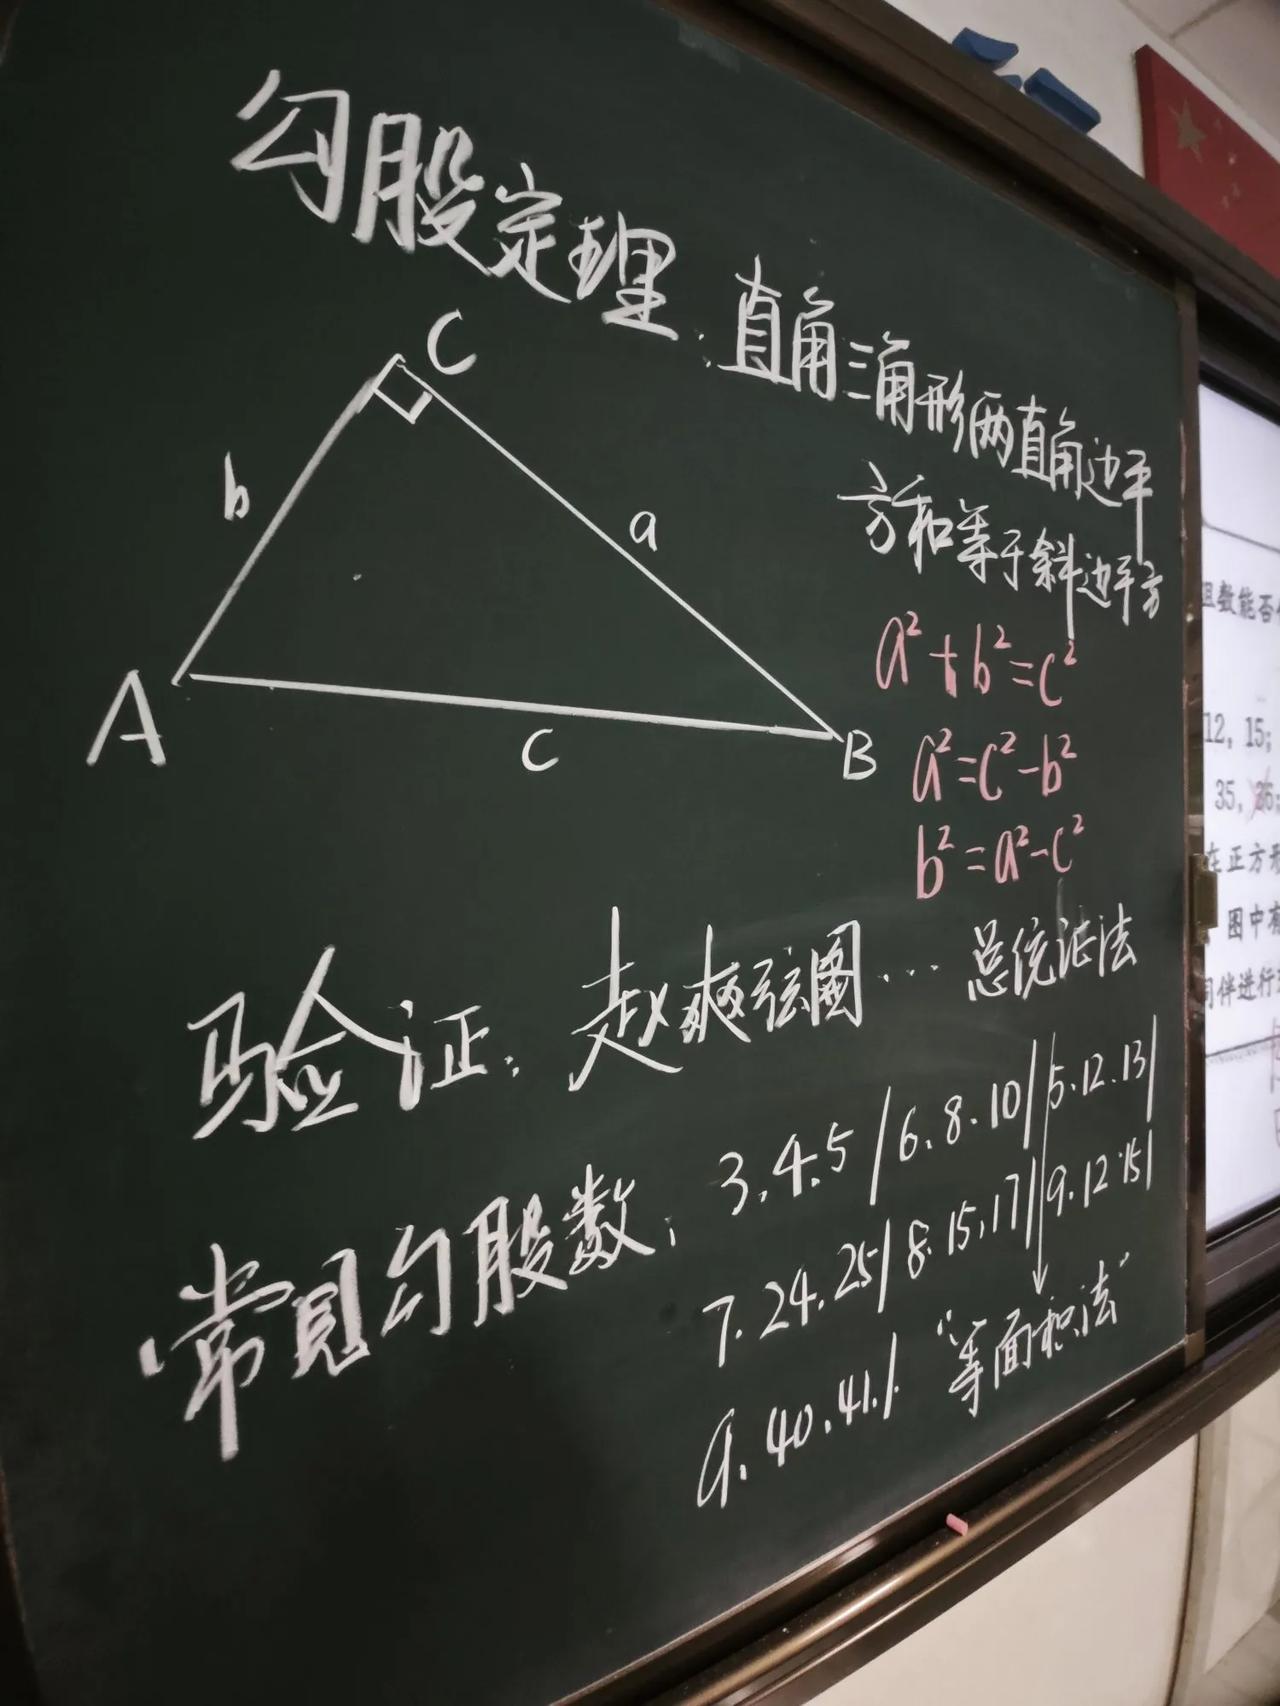 勾股定理:直角三角形两直角边平
方和等于斜边平方
C
b
a
A
c
B
a²+b²=c²
a²=c²-b²
b²=a²-c²
验证:赵爽弦图…总统证法
常见勾股数:3.4.5/6.8.10/5.12.13/
7.24.25/8.15.17/9.12.15/
9.40.41./.“等面积法”
数能否
12, 15;
35, 36;
在正方形
图中有
同伴进行